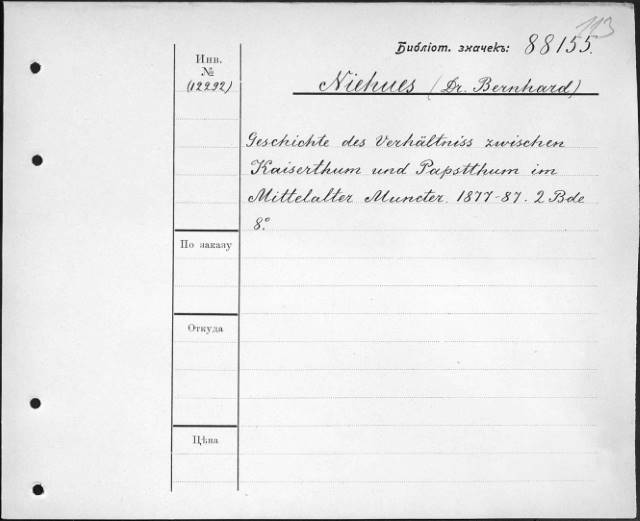 113
Библіот. значекъ: 88155.
Инв.
№
(12292)
Niehues (Dr. Bernhard)
Geschichte des Verhältniss zwischen
Kaiserthum und Papstthum im
Mittelalter Muncter. 1877-87. 2 Bde
8.°
По заказу
Откуда
Цѣна